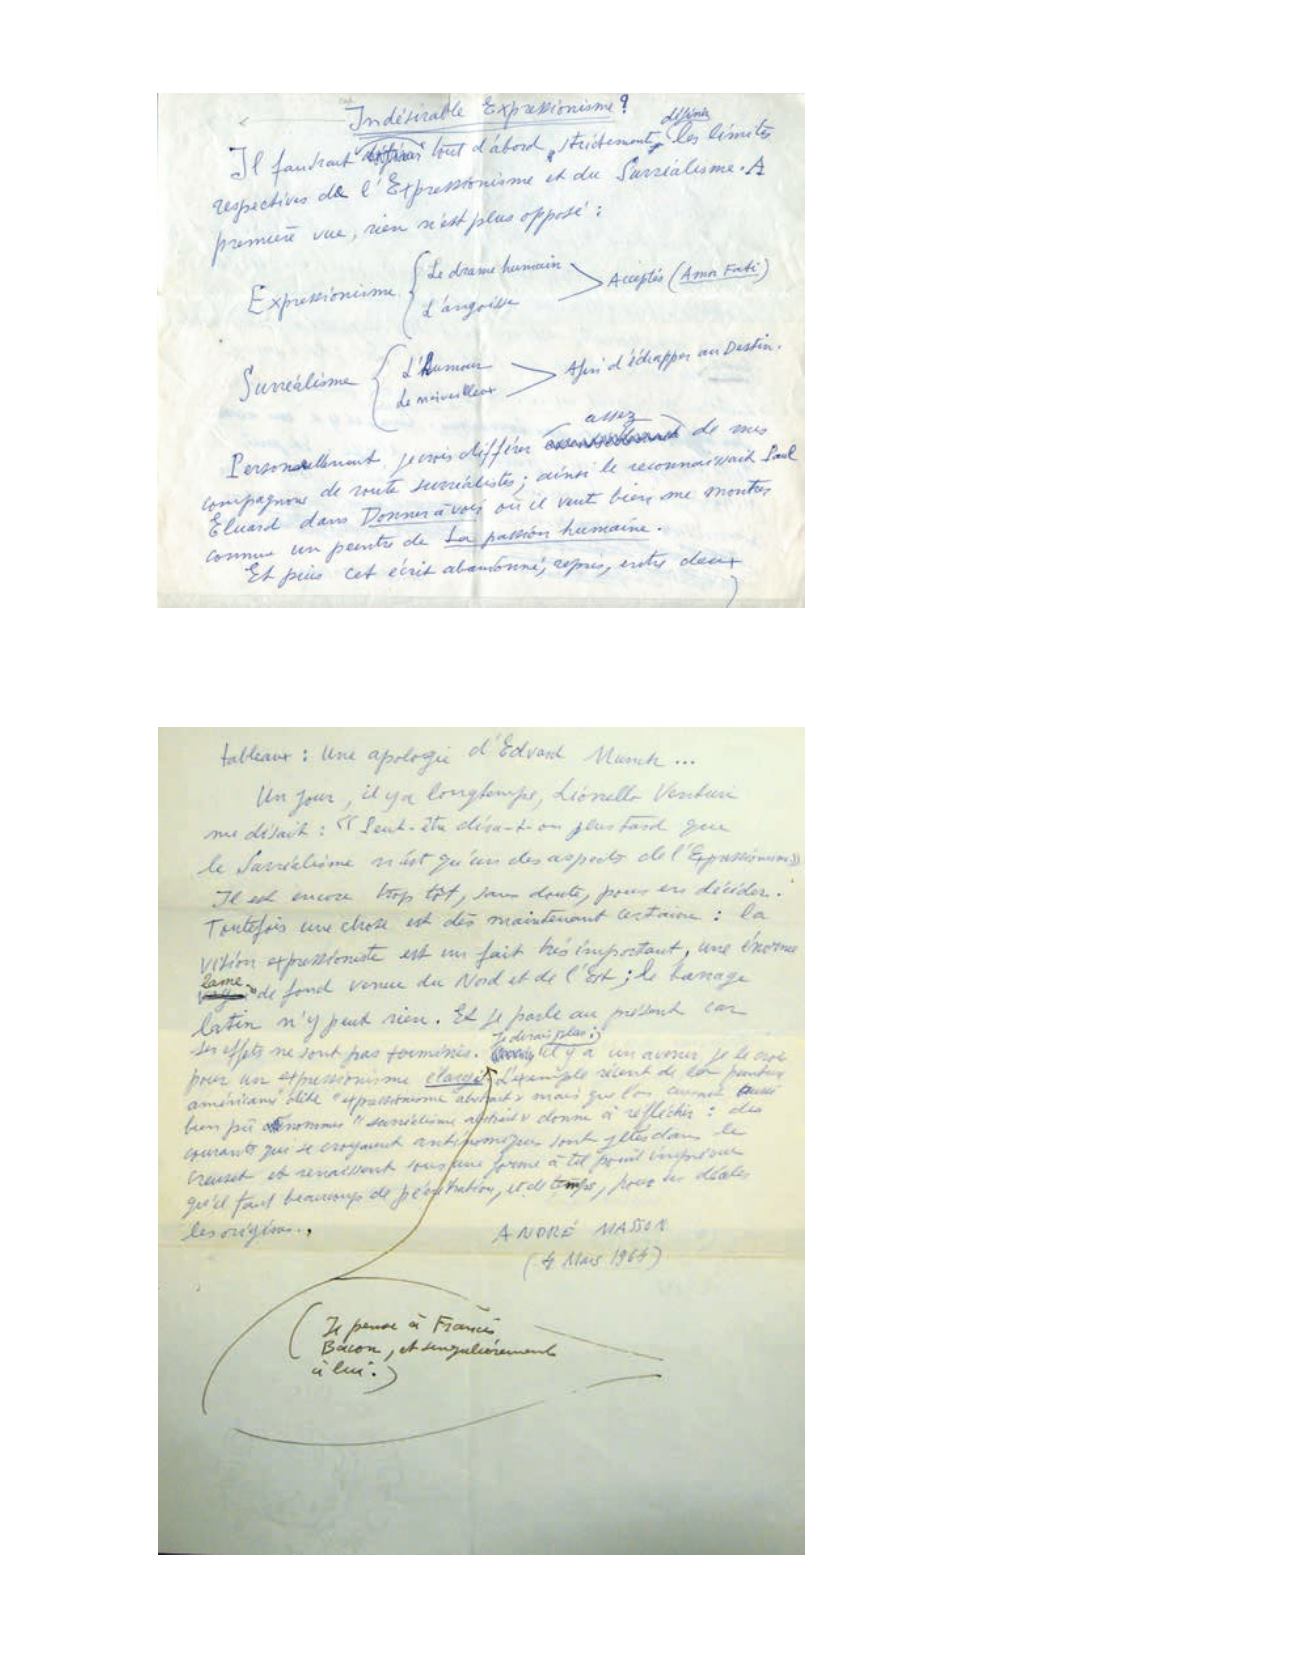 Indésirable Expressionisme ?
définir
Il faudrait tout d'abord, strictement, les limites
respectives de l'Expressionisme et du Surréalisme. A
première vue, rien n'est plus opposé :
Expressionisme { Le drame humain
L'angoisse > Acceptés (Amor Fati)
Surréalisme { L'humour
Le merveilleux > Afin d'échapper au Destin.
assez
Personnellement, je vois différer de mes
compagnons de route surréalistes ; ainsi le reconnaissait Paul
Eluard dans Donner à voir où il veut bien me montrer
comme un peintre de La passion humaine.
Et puis cet écrit abandonné, repris, entre deux
tableaux : Une apologie d'Edvard Munch ...
Un jour, il y a longtemps, Lionello Venturi
me disait : « Peut-être dira-t-on plus tard que
le Surréalisme n'est qu'un des aspects de l'Expressionisme »
Il est encore trop tôt, sans doute, pour en décider.
Toutefois une chose est dès maintenant certaine : la
vision expressioniste est un fait très important, une énorme
lame
de fond venue du Nord et de l'Est ; le barrage
latin n'y peut rien. Et je parle au présent car
je dirais plus :
ses effets ne sont pas terminés. il y a un avenir je le crois
pour un expressionisme élargi. L'exemple récent de la peinture
américaine dite "expressionisme abstrait" mais que l'on aurait aussi
bien pu nommer "surréalisme abstrait" donne à réfléchir : des
courants qui se croyaient antinomiques sont jetés dans le
creuset et renaissent sous une forme à tel point imprévue
qu'il faut beaucoup de pénétration, et de temps, pour en déceler
les origines.
ANDRÉ MASSON
(4 Mars 1964)
(Je pense à Francis
Bacon, et singulièrement
à lui.)